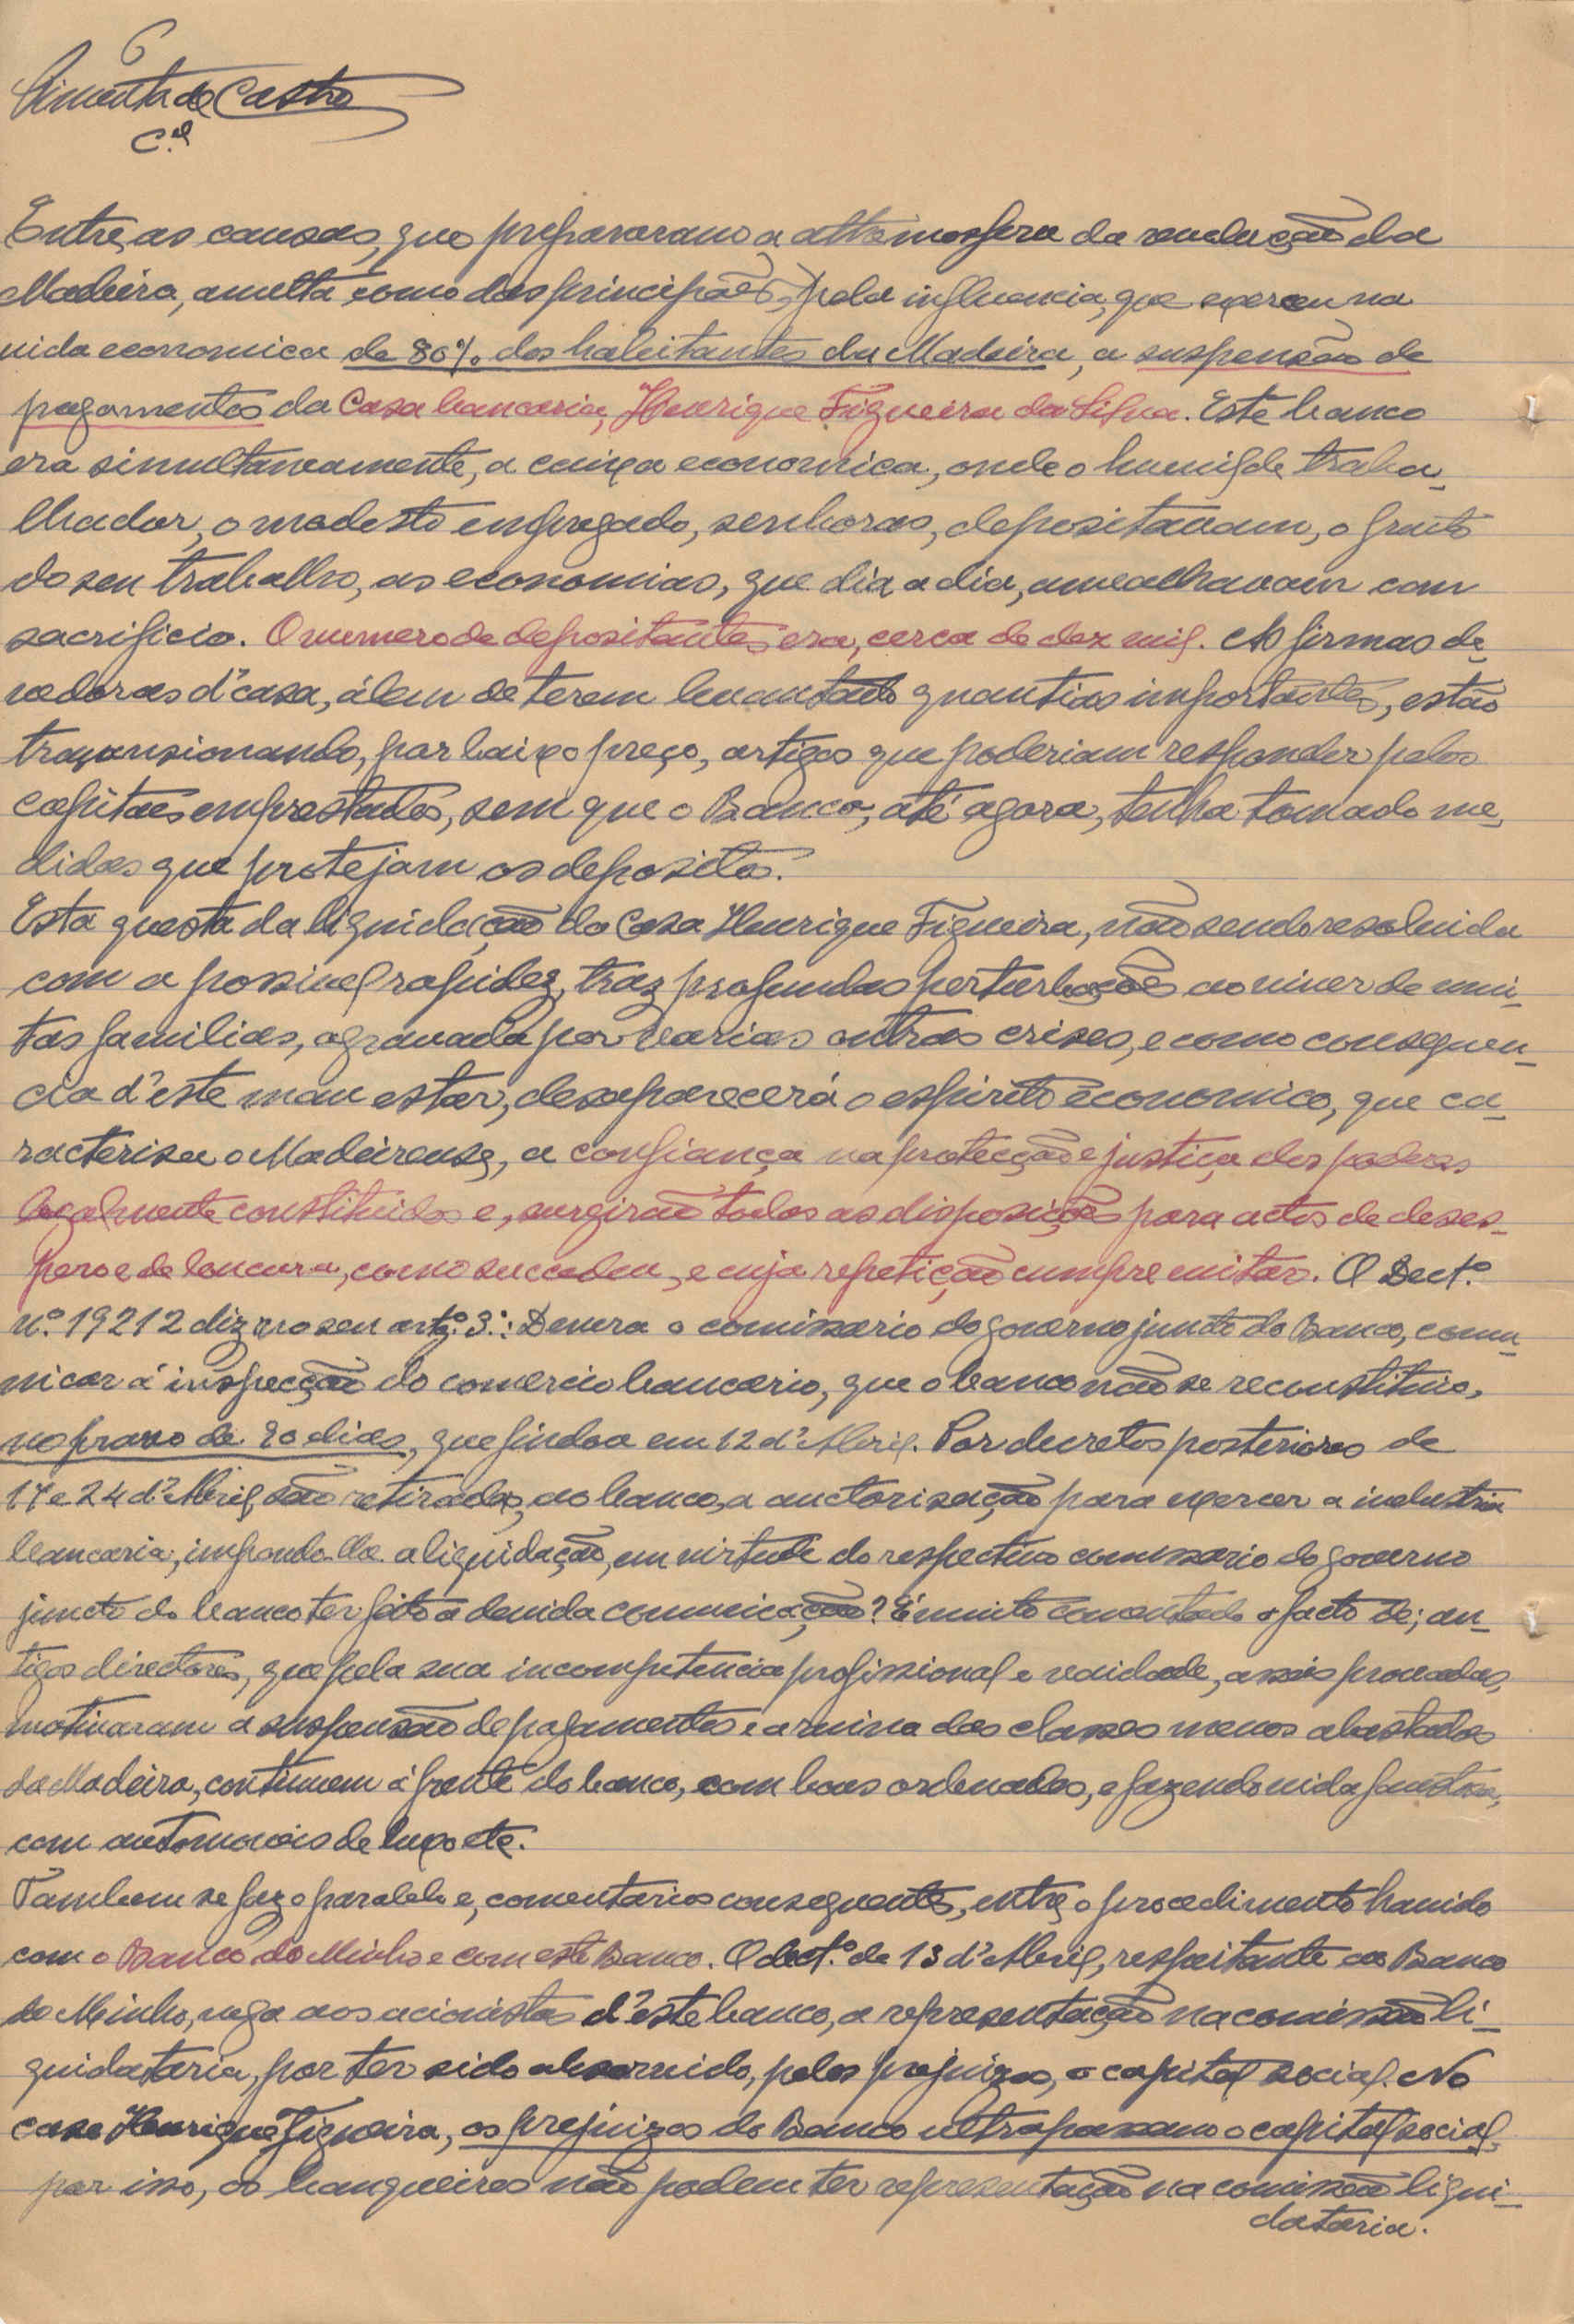 6
Pimenta de Castro
C.el
Entre, as causas, que prepararam a atthmosfera da revolução da
Madeira, avulta como das principaes, pela influencia, que exerceu na
vida economica de 80% dos habitantes da Madeira, a suspensão de
pagamentos da Casa bancaria, Henrique Figueira da Silva. Este banco
era simultaneamente, a caixa economica, onde o humilde traba-
lhador, o modesto empregado, senhoras, depositavam, o fruto
do seu trabalho, as economias, que dia a dia, amealhavam com
sacrificio. O numero de depositantes era, cerca de dez mil. As firmas de-
vedoras d'casa, álem de terem levantado quantias importantes, estão
transionando, por baixo preço, artigos que poderiam responder pelos
capitaes emprestados, sem que o Banco, até agora, tenha tomado me-
didas que protejam os depositos.
Esta questa da liquidação da Casa Henrique Figueira, não sendo resolvida
com a possivel rapidez, traz profundas perturbações ao viver de mui-
tas familias, agravada por varias outras crises, e como consequen-
cia d'este mau estar, desaparecerá o espirito economico, que ca-
racterisa o Madeirense, a confiança na protecção e justiça dos poderes
legalmente constituidos e, surgirão todas as disposições para actos de deses-
pero e de loucura, como succedeu, e cuja repetição cumpre evitar. O Dect.º
n.º 19212 diz no seu artg.º 3.º: Devera o comissario do governo juncto do Banco, comu-
nicar á inspecção do comercio bancario, que o banco não se reconstituio,
no praso de 20 dias, que findou em 12 d'Abril. Por decretos posteriores de
17 e 24 d'Abril são retirados, ao banco, a auctorisação para exercer a industria
bancaria, impondo-lhe a liquidação, em virtude do respectivo comissario do governo
juncto do banco ter feito a devida comunicação? É muito comentado o facto de; an-
tigos directores, que pela sua incompetencia profissional e vaidade, assás provadas,
motivaram a suspensão de pagamentos e a ruina das classes menos abastadas
da Madeira, continuem á frente do banco, com boas ordenados, e fazendo vida faustosa,
com automoveis de luxo etc.
Tambem se faz o paralelo e, comentarios consequentes, entre o procedimento havido
com o Banco do Minho e com este Banco. O dect.º de 13 d'Abril, respeitante ao Banco
do Minho, nega aos acionistas d'este banco, a representação na comissão li-
quidataria, por ter sido absorvido, pelos prejuizos, o capital social. No
caso Henrique Figueira, os prejuizos do Banco ultrapassam o capital social,
por isso, os banqueiros não podem ter representação na comissão liqui-
dataria.